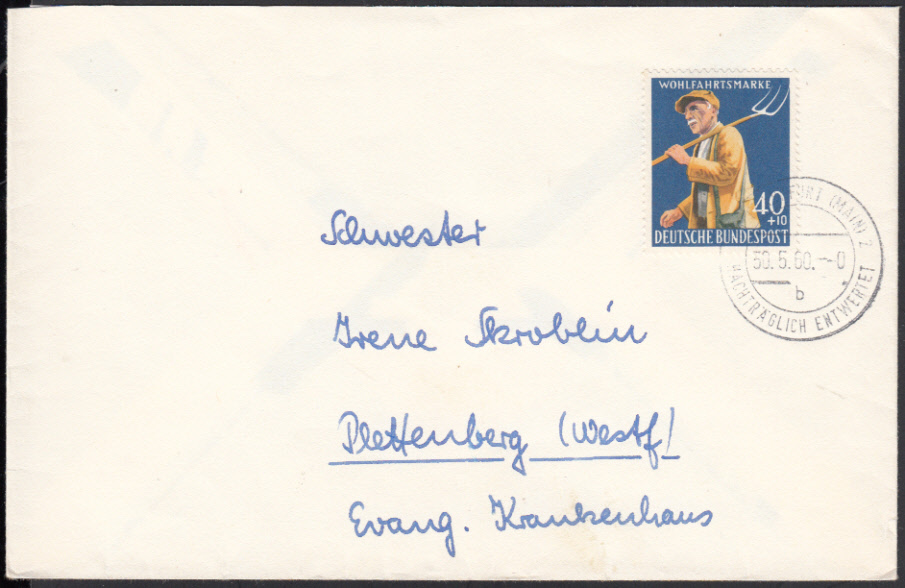 WOHLFAHRTSMARKE
40
+10
DEUTSCHE BUNDESPOST
(MAIN) 2
30.5.60.--0
b
NACHTRÄGLICH ENTWERTET
Schwester
Irene Skroblin
Plettenberg (Westf)
Evang. Krankenhaus